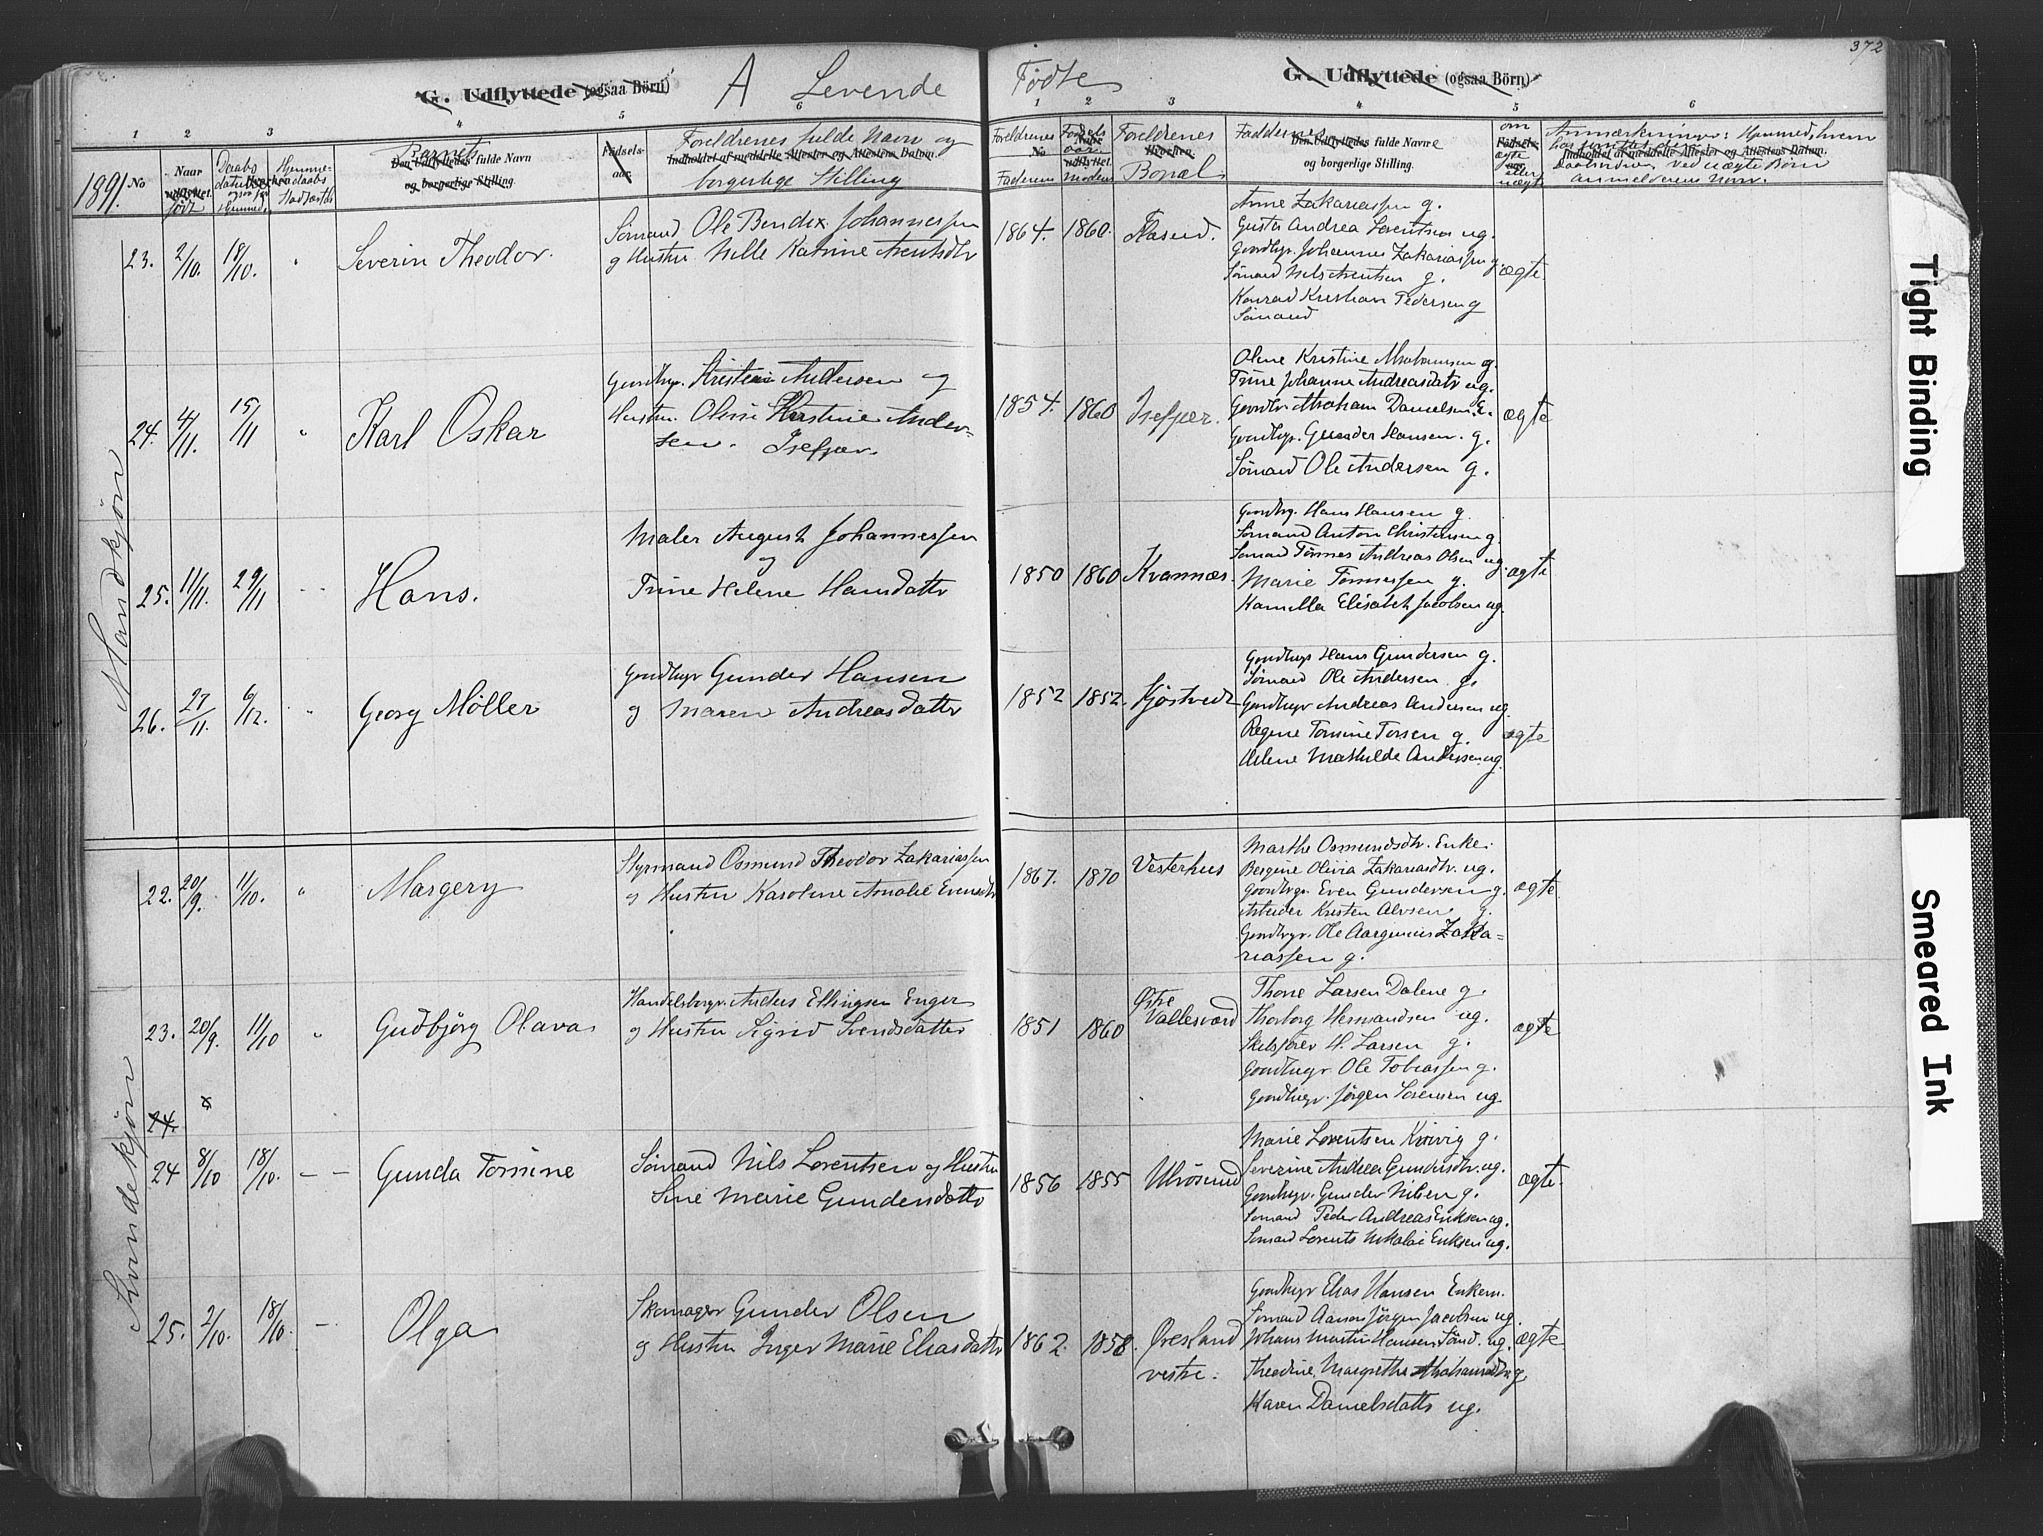 372
G. Udflyttede (ogsaa Börn)
A Levende Fødte
G. Udflyttede (ogsaa Börn)
1 2 3 4 5 6
1 2 3 4 5 6
1891. No
Naar udflyttet. født
Daabs datum
Hjemme-daabs Stadfæstelse
Barnets
Den Udflyttedes fulde Navn og borgerlige Stilling.
Fødsels-aar.
Forældrenes fulde Navn og
Indholdet af meddelte Attester og Attestens Datum.
borgerlige Stilling
Forældrenes Fødsels aar
No Faderens
Moders
Forældrenes Bopæl
Faddernes
Den Udflyttedes fulde Navne og borgerlige Stilling.
om ægte eller uægte
Anmærkninger: Hjemmed. hvem
Indholdet af meddelte Attester og Attestens Datum.
ved uægte Børn
Anmelderens Navn.
Mandkjøn
23. 2/10. 18/10. " Severin Theodor.
Sömand Ole Bendix Johannessen
og Hustru Nille Katrine Arentsdtr
1864. 1860. Flasud.
Anne Zakariassen g.
Gusta Andrea Lorentsen ug.
Gaardbgr. Johannes Zakariassen g.
Sömand Nils Arentsen g.
Konrad Kristian Pedersen g
Sömand
ægte.
24. 4/11. 15/11 " Karl Oskar
Gaardbgr. Kristen Andersen og
Hustru Oline Kristine Ander=
sen. Isefjær.
1854. 1860 Isefjær.
Oline Kristine Abrahamsen g.
Trine Johanne Andreasdatr ug.
Gaardbr. Abraham Danielsen g.
Gaardbgr. Gunder Hansen. g.
Sömand Ole Andersen g.
ægte
25. 11/11. 29/11 " Hans.
Maler August Johannessen
og
Trine Helene Hansdatter
1850 1860 Kvannæs.
Gaardbrg. Hans Hansen g.
Sömand Anton Christensen g.
Sömand Tönnes Andreas Olsen ug.
Marie Tönnessen g.
Kamilla Elisabet Jacobsen ug.
ægte
26. 27/11. 6/12. " Georg Möller
Gaardbgr Gunder Hansen
og Maren Andreasdatter
1852 1852. Kjöstvedt
Gaardbgr Hans Gundersen g.
Sömand Ole Andersen g.
Gaardbgr Andreas Andersen ug.
Regine Tomine Torsen g.
Helene Mathilde Andersen ug.
ægte
Kvindekjön
22. 20/9. 11/10. " Margery
Styrmand Osmund Theodor Zakariassen
og Hustru Karoline Amalie Evensdtr
1867. 1870 Vesterhus
Marthe Osmundsdtr. Enke.
Bergine Olivia Zakariasdtr. ug.
Gaardbrgr. Even Gundersen g.
Arbeider Kristen Alvsen g.
Gaardbrgr. Ole Aargenius Zaka=
riassen g.
ægte.
23. 20/9. 11/10 " Gudbjörg Olava
Handelsborgr. Anders Ellingsen Enger
og Hustru Sigrid Svendsdatter
1851 1860 Østre Vallesværd
Thone Larsen Dalene g.
Thorborg Hermandsen ug.
Skibsförer H. Larsen g.
Gaardbrgr Ole Tobiassen g.
Gaardbrgr. Jörgen Sörensen ug.
ægte
24.
24 8/10 18/10. – – Gunda Tomine
Sömand Nils Lorentsen og Hustru
Sine Marie Gundersdatter
1856 1855 Ulvösund
Marie Lorentsen Kvivig g.
Severine Andrea Gundersdtr. ug.
Gaardbgr. Gunder Nilsen g.
Sömand Peder Andreas Eriksen ug.
Sömand Lorents Nikolai Eriksen ug.
ægte.
25. 2/10. 18/10. – Olga
Skomager Gunder Olsen
og Hustru Inger Marie Eliasdatter
1862. 1858. Øresland vestre.
Gaardbgr Elias Hansen Enkem.
Sömand Aanon Jörgen Jacobsen ug.
Johans Martin Hansen Sömd. ug.
Theodine Margrethe Abrahamsdtr g.
Karen Danielsdatter ug.
ægte
Tight Binding
Smeared Ink